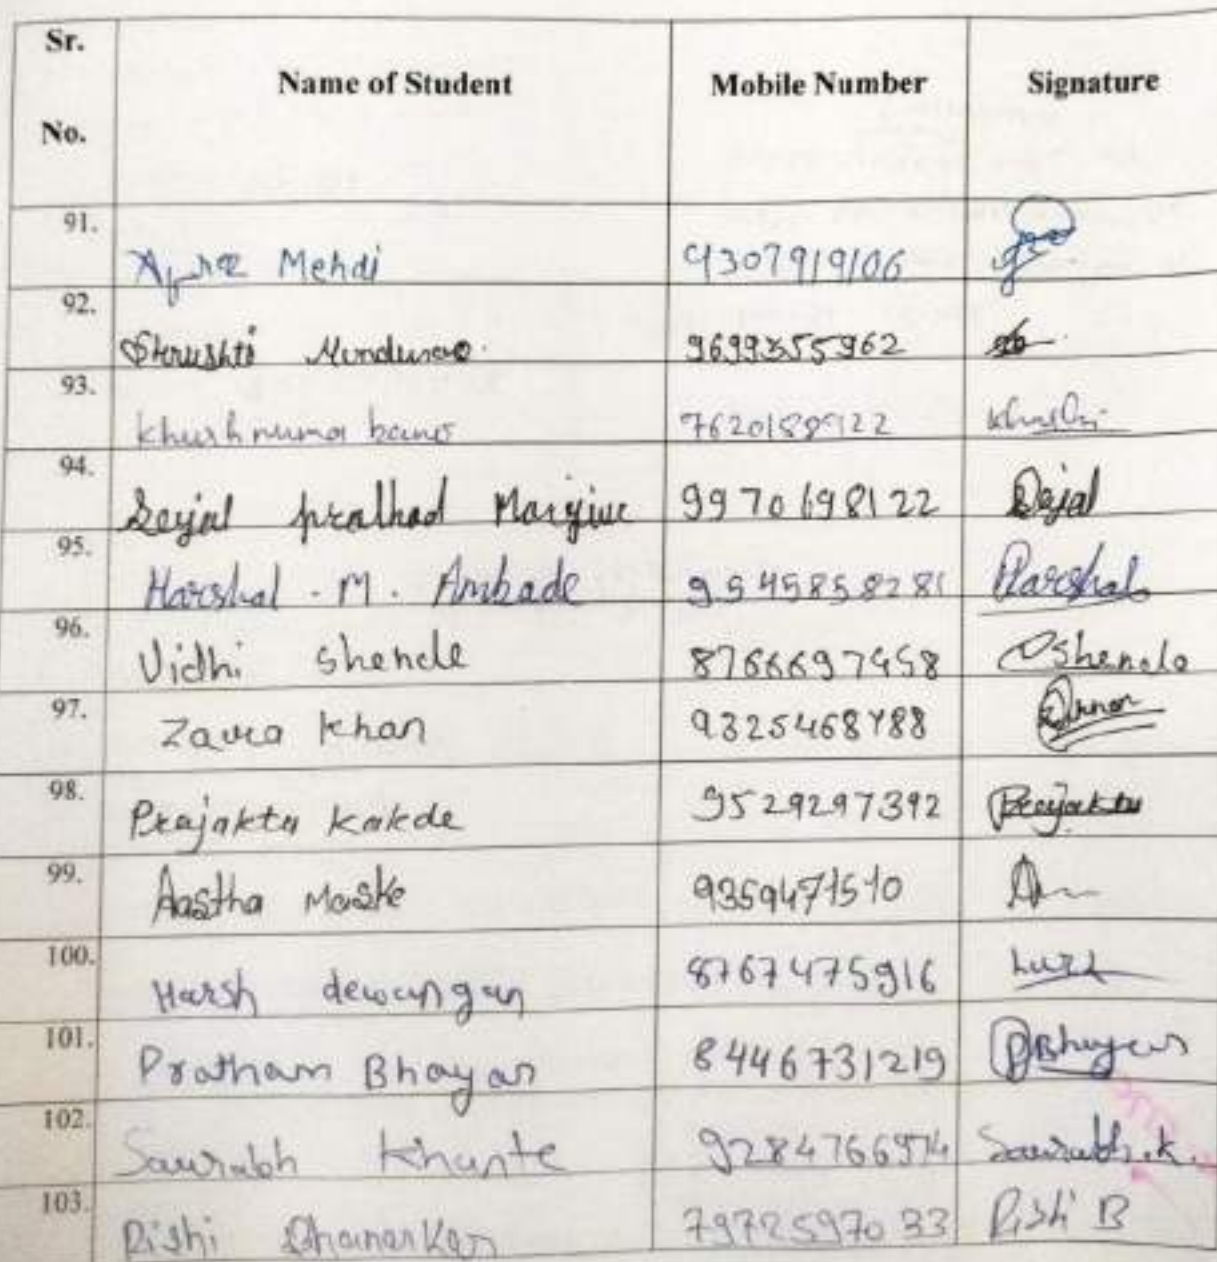 Sr. No. Name of Student Mobile Number Signature
91. Mehdi 9307919106
92. Shrushti 9699355962
93. Khushnuma bano 7620188922
94. Sejal pralhad 9970698122 Sejal
95. Harshal . M . Ambade 9545858281 Harshal
96. Vidhi Shende 8766697458 Shende
97. Zavra Khan 9325468788
98. Prajakta Kakde 9529297392 Prajakta
99. Aastha Maske 9359471510
100. Harsh dewangan 8767475916
101. Pratham Bhoyar 8446731219 PBhoyar
102. Saurabh Khunte 9284766974 Saurabh.K.
103. Rishi Bhanarkar 7972597033 Rishi B